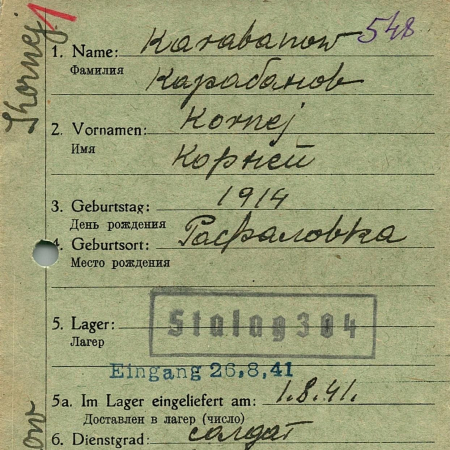 Kornej 1
548
1. Name: Karabanow
Фамилия Карабанов
2. Vornamen: Kornej
Имя Корней
3. Geburtstag: 1914
День рождения
4. Geburtsort: Рафаловка
Место рождения
5. Lager: Stalag 304
Лагерь
Eingang 26.8.41
5a. Im Lager eingeliefert am: 1.8.41.
Доставлен в лагерь (число)
6. Dienstgrad: салдат